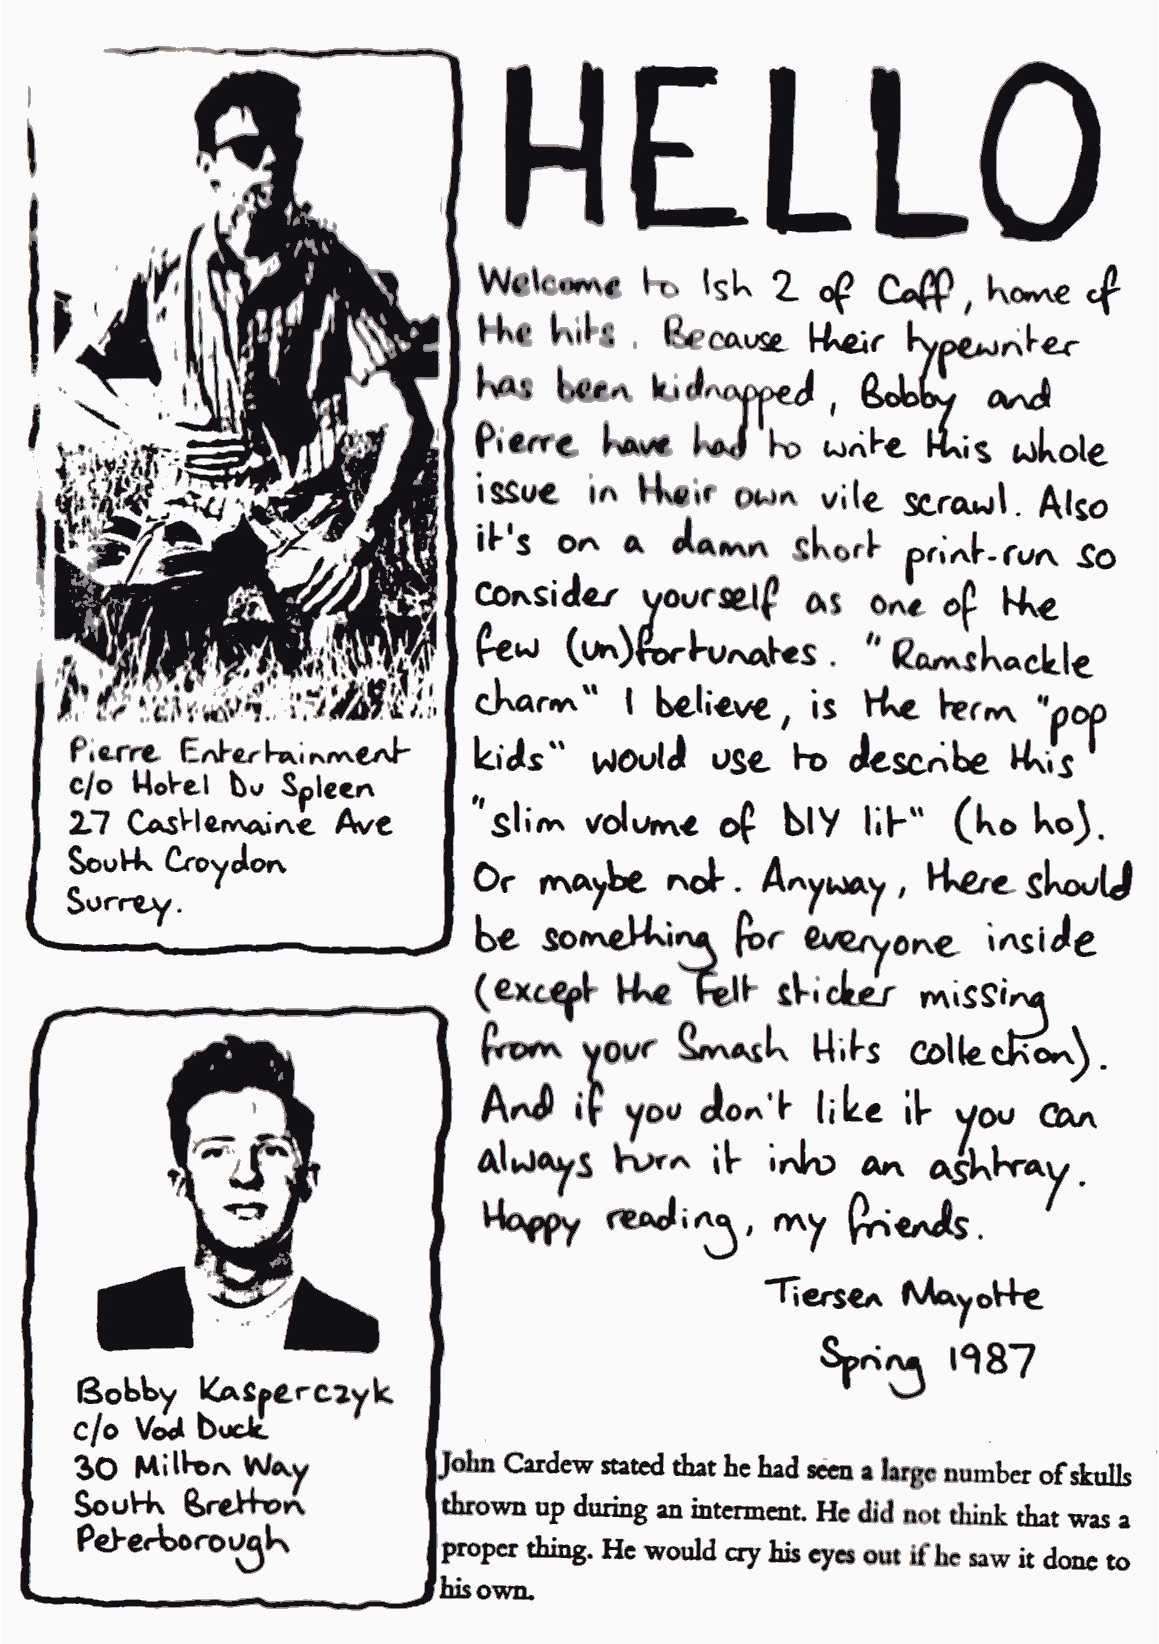 HELLO
Welcome to Ish 2 of Caff, home of
the hits. Because their typewriter
has been kidnapped, Bobby and
Pierre have had to write this whole
issue in their own vile scrawl. Also
it's on a damn short print-run so
consider yourself as one of the
few (un)fortunates. "Ramshackle
charm" I believe, is the term "pop
kids" would use to describe this
"slim volume of DIY lit" (ho ho).
Or maybe not. Anyway, there should
be something for everyone inside
(except the Felt sticker missing
from your Smash Hits collection).
And if you don't like it you can
always turn it into an ashtray.
Happy reading, my friends.
Tiersen Mayotte
Spring 1987
Pierre Entertainment
c/o Hotel Du Spleen
27 Castlemaine Ave
South Croydon
Surrey.
Bobby Kasperczyk
c/o Vod Duck
30 Milton Way
South Bretton
Peterborough
John Cardew stated that he had seen a large number of skulls
thrown up during an interment. He did not think that was a
proper thing. He would cry his eyes out if he saw it done to
his own.